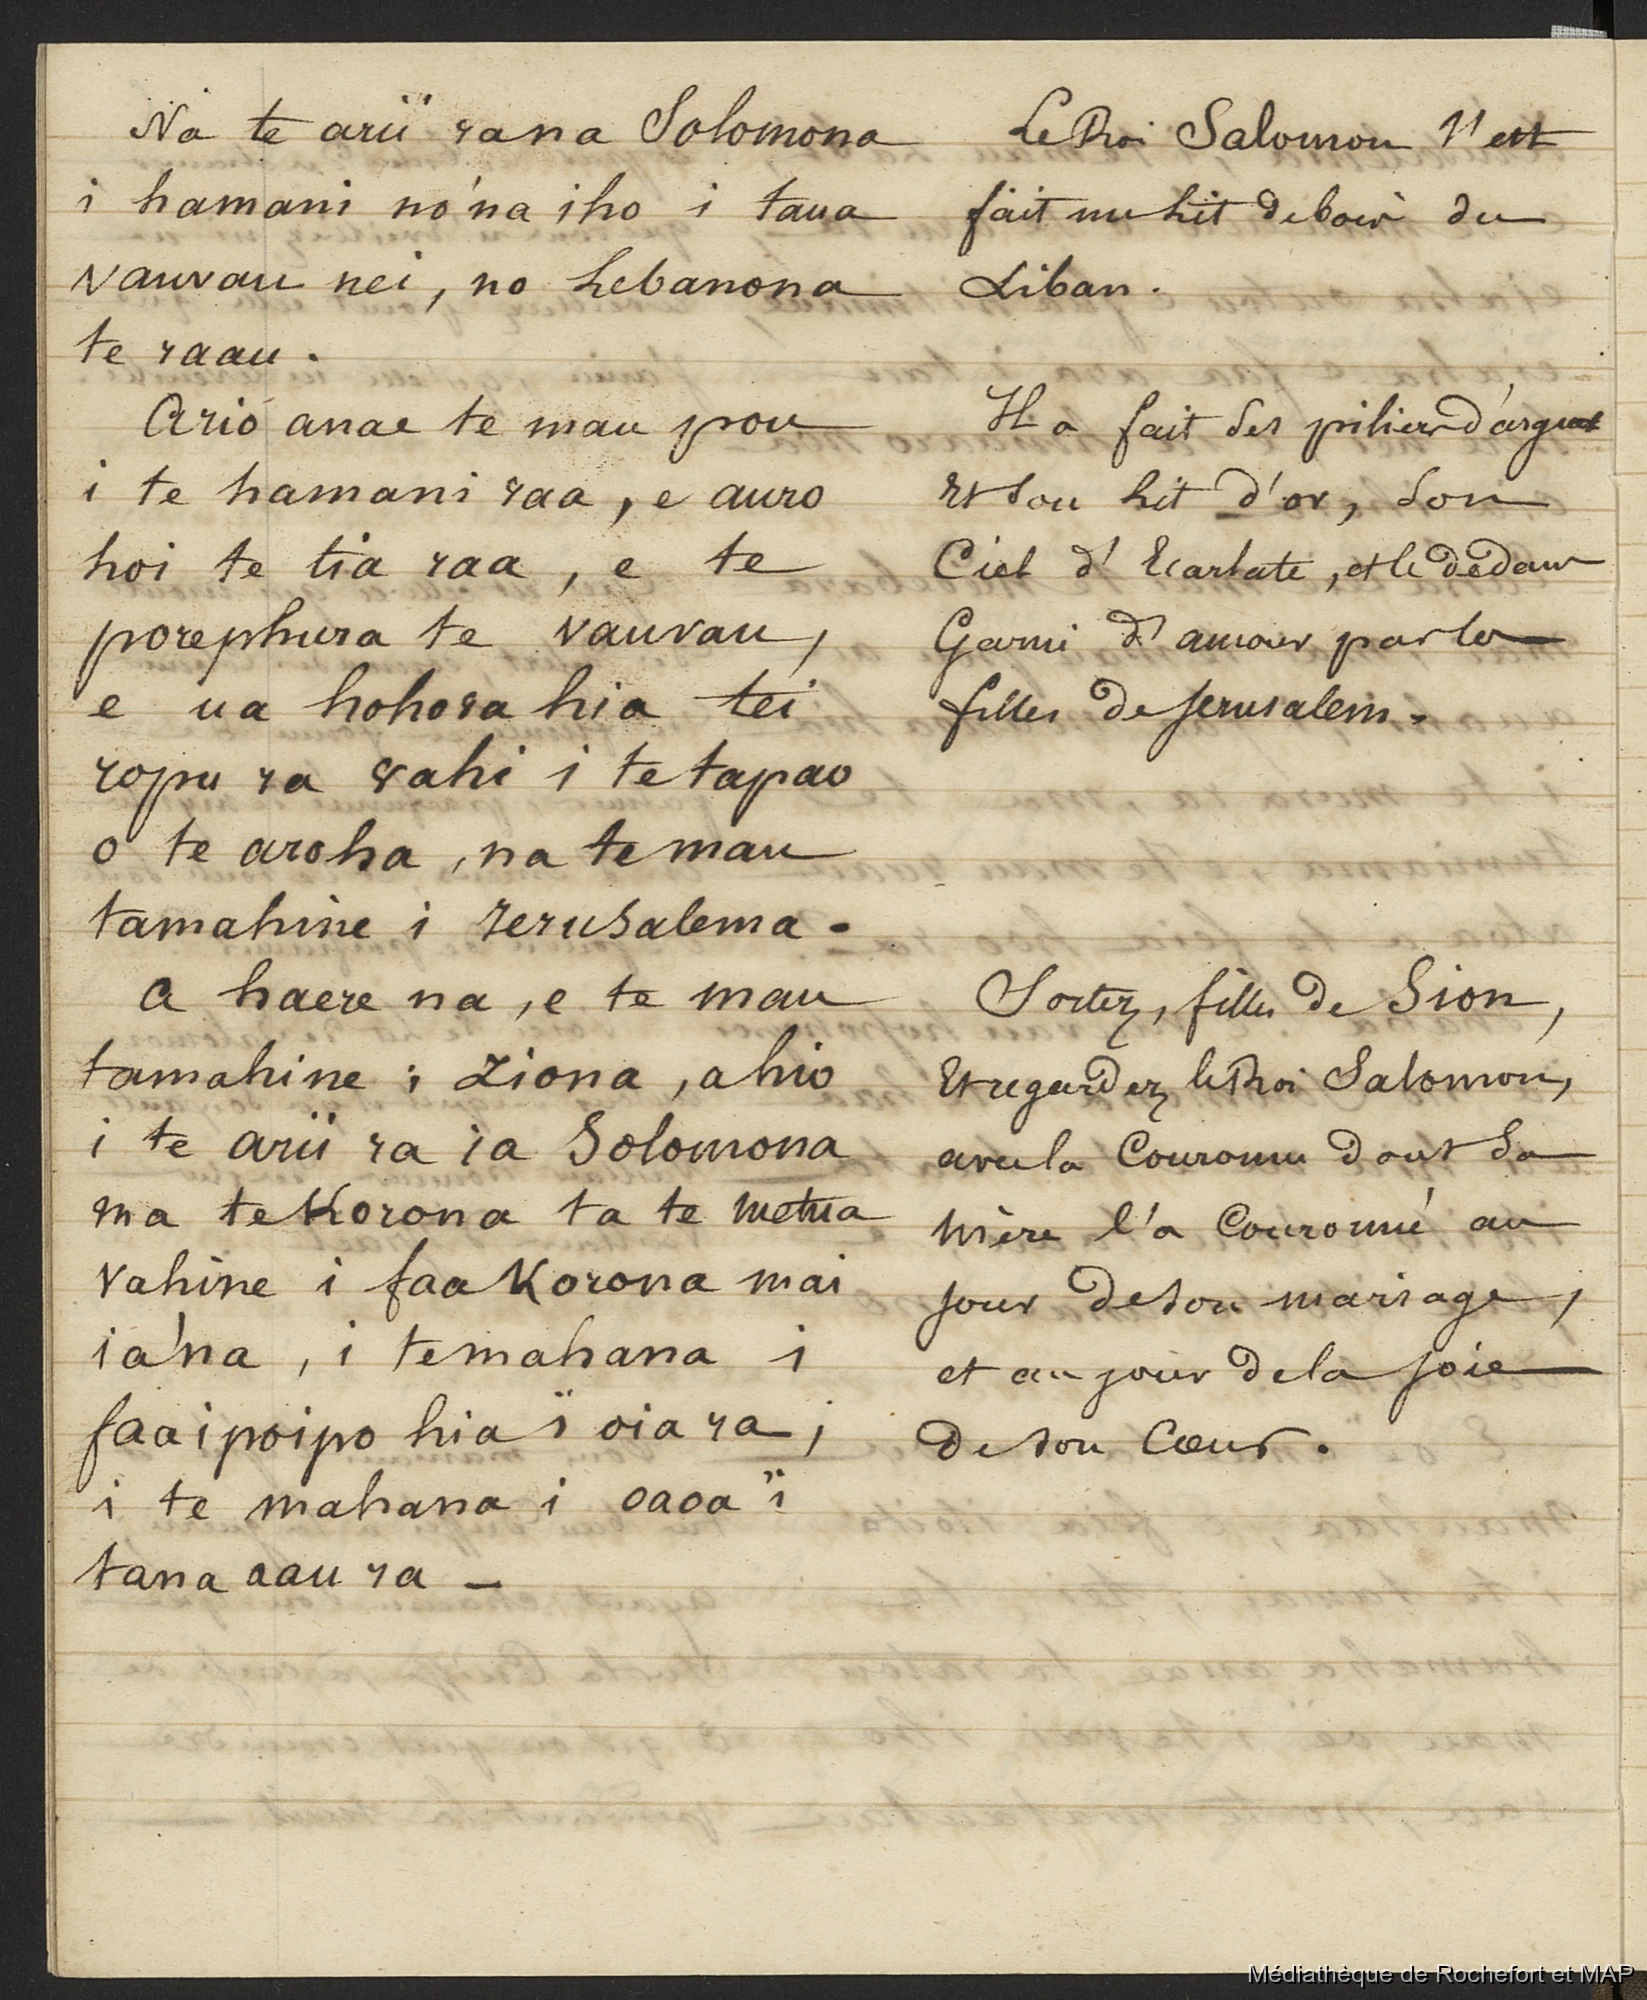 Na te arii ra na Solomona
i hamani no'na iho i taua
vauvau nei, no Lebanona
te raau.
Ario anae te mau pou
i te hamani raa, e auro
hoi te tia raa, e te
porephura te vauvau,
e ua hohora hia tei
ropu ra vahi i te tapao
o te aroha, na te mau
tamahine i Ierusalema.
A haere na, e te mau
tamahine i Ziona, a hio
i te arii ra ia Solomona
ma te Korona ta te metua
vahine i faa Korona mai
ia'na, i te mahana i
faaipoipo hia ï oia ra,
i te mahana i oaoa ï
tana aau ra _
Le Roi Salomon s'est
fait un Lit de bois du
Liban.
Il a fait ses piliers d'argent
Et son Lit d'or, son
Ciel d'Ecarlate, et le dedans
Garni d'amour par les
filles de Jerusalem.
Sortez, filles de Sion,
Et regardez le Roi Salomon,
avec la Couronne dont sa
Mère l'a Couronné au
jour de son mariage,
et au jour de la joie
de son Cœur.
Médiathèque de Rochefort et MAP